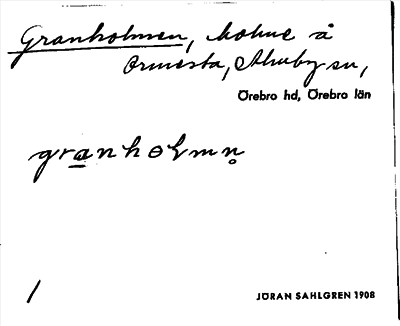 Granholmen, holme å
Ormesta, Almby sn,
Örebro hd, Örebro län
gra̲nhɵlmn̥
/
JÖRAN SAHLGREN 1908